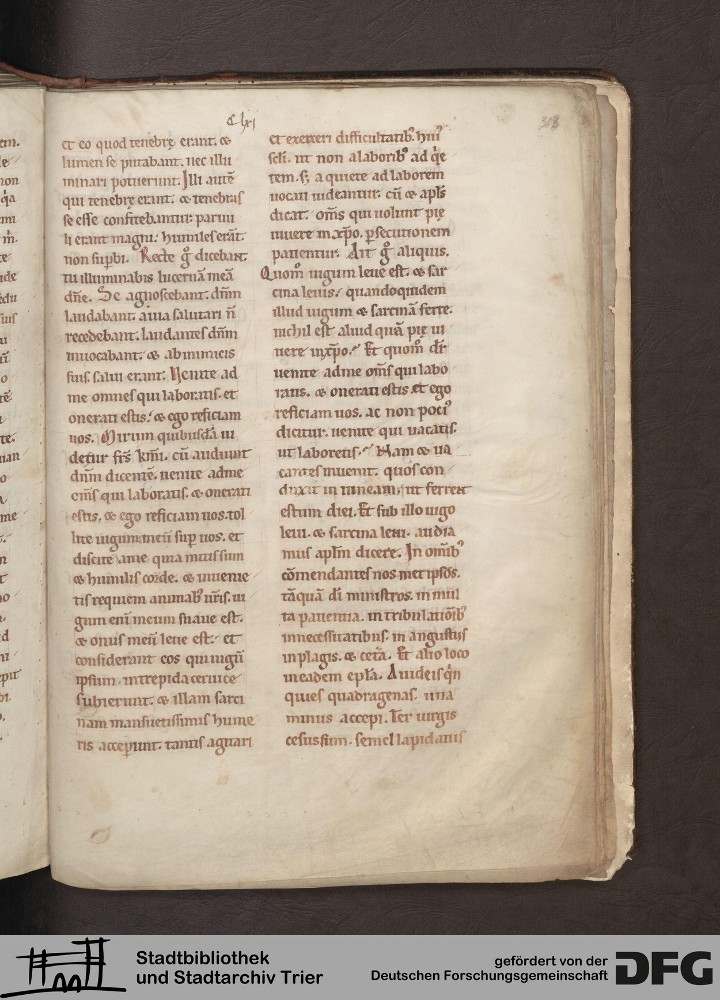 Clxi
308
et eo quod tenebrę erant. &
lumen se putabant. nec illu
minari potuerunt. Illi autē
qui tenebrę erant. & tenebras
se esse confitebantur. paruu
li erant magni. humiles erāt.
non sup̄bi. Recte gͦ dicebant
tu illuminabis lucernā meā
dn̄e. Se agnoscebant. dn̄m
laudabant. a uia salutari n̄
recedebant. laudantes dn̄m
inuocabant. & ab inimicis
suis salui erant. Uenite ad
me omnes qui laboratis. et
onerati estis. & ego reficiam
uos. Mirum quibusdā ui
detur frs̄ km̄i. cū audiunt
dn̄m dicentē. uenite adme
om̄s qui laboratis. & onerati
estis. & ego reficiam uos. tol
lite iugum meū sup uos. et
discite ame quia mitis sum
& humilis corde. & inuenie
tis requiem animabꝰ ur̄is. iu
gum enī meum suaue est.
& onus meū leue est. et
considerant eos qui iugū
ipsum intrepida ceruice
subierunt. & illam sarci
nam mansuetissimis hume
ris acceperunt. tantis agitari
et exerceri difficultatibꝰ. huiꝰ
scl̄i. ut non a laboribꝰ ad q̄e
tem. s; a quiete ad laborem
uocati uideantur. cū & apl̄s
dicat. om̄s qui uolunt pię
uiuere in xp̄o. p̄secutionem
patientur. Ait gͦ aliquis.
Quom̄ iugum leue est. & sar
cina leuis. quandoquidem
illud iugum & sarcinā ferre.
nichil est aliud quā pię ui
uere inxp̄o. Et quom̄ dr̄
uenite adme om̄s qui labo
ratis. & onerati estis et ego
reficiam uos. ac non pociꝰ
dicitur. uenite qui uacatis.
ut laboretis. Nam & ua
cantes inuenit. quos con
duxit in uineam. ut ferrent
estum diei. Et sub illo iugo
leui. & sarcina leui. audia
mus apl̄m dicere. In om̄ibꝰ
cōmendantes nos met ipsos.
tāquā dī ministros. in mul
ta patientia. in tribulatiōibꝰ
innecessitatibus. in angustiis
inplagis. & cetā. Et alio loco
in eadem epl̄a. A iudeis qn̄
quies quadragenas. una
minus accepi. Ter uirgis
cesus sum. semel lapidatus
Stadtbibliothek
und Stadtarchiv Trier
gefördert von der
Deutschen Forschungsgemeinschaft
DFG